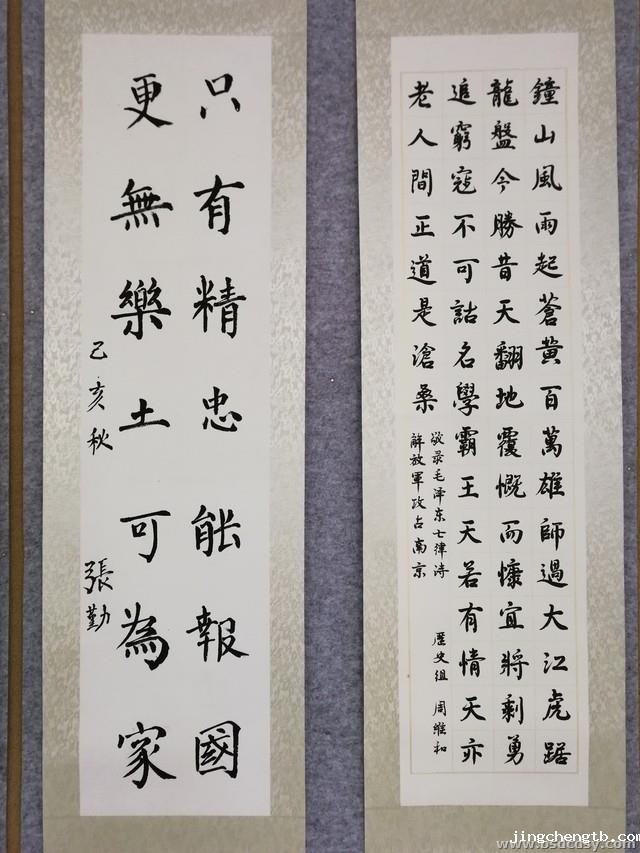 鐘山風雨起蒼黄百萬雄師過大江虎踞
龍盤今勝昔天翻地覆慨而慷宜將剩勇
追窮寇不可詁名學霸王天若有情天亦
老人間正道是滄桑
敬录毛泽东七律诗
解放軍攻占南京
歷史组 周维和
只有精忠能報國
更無樂土可為家
己亥秋 張勤
jingchengtb.com
www.bsdcdsy.com